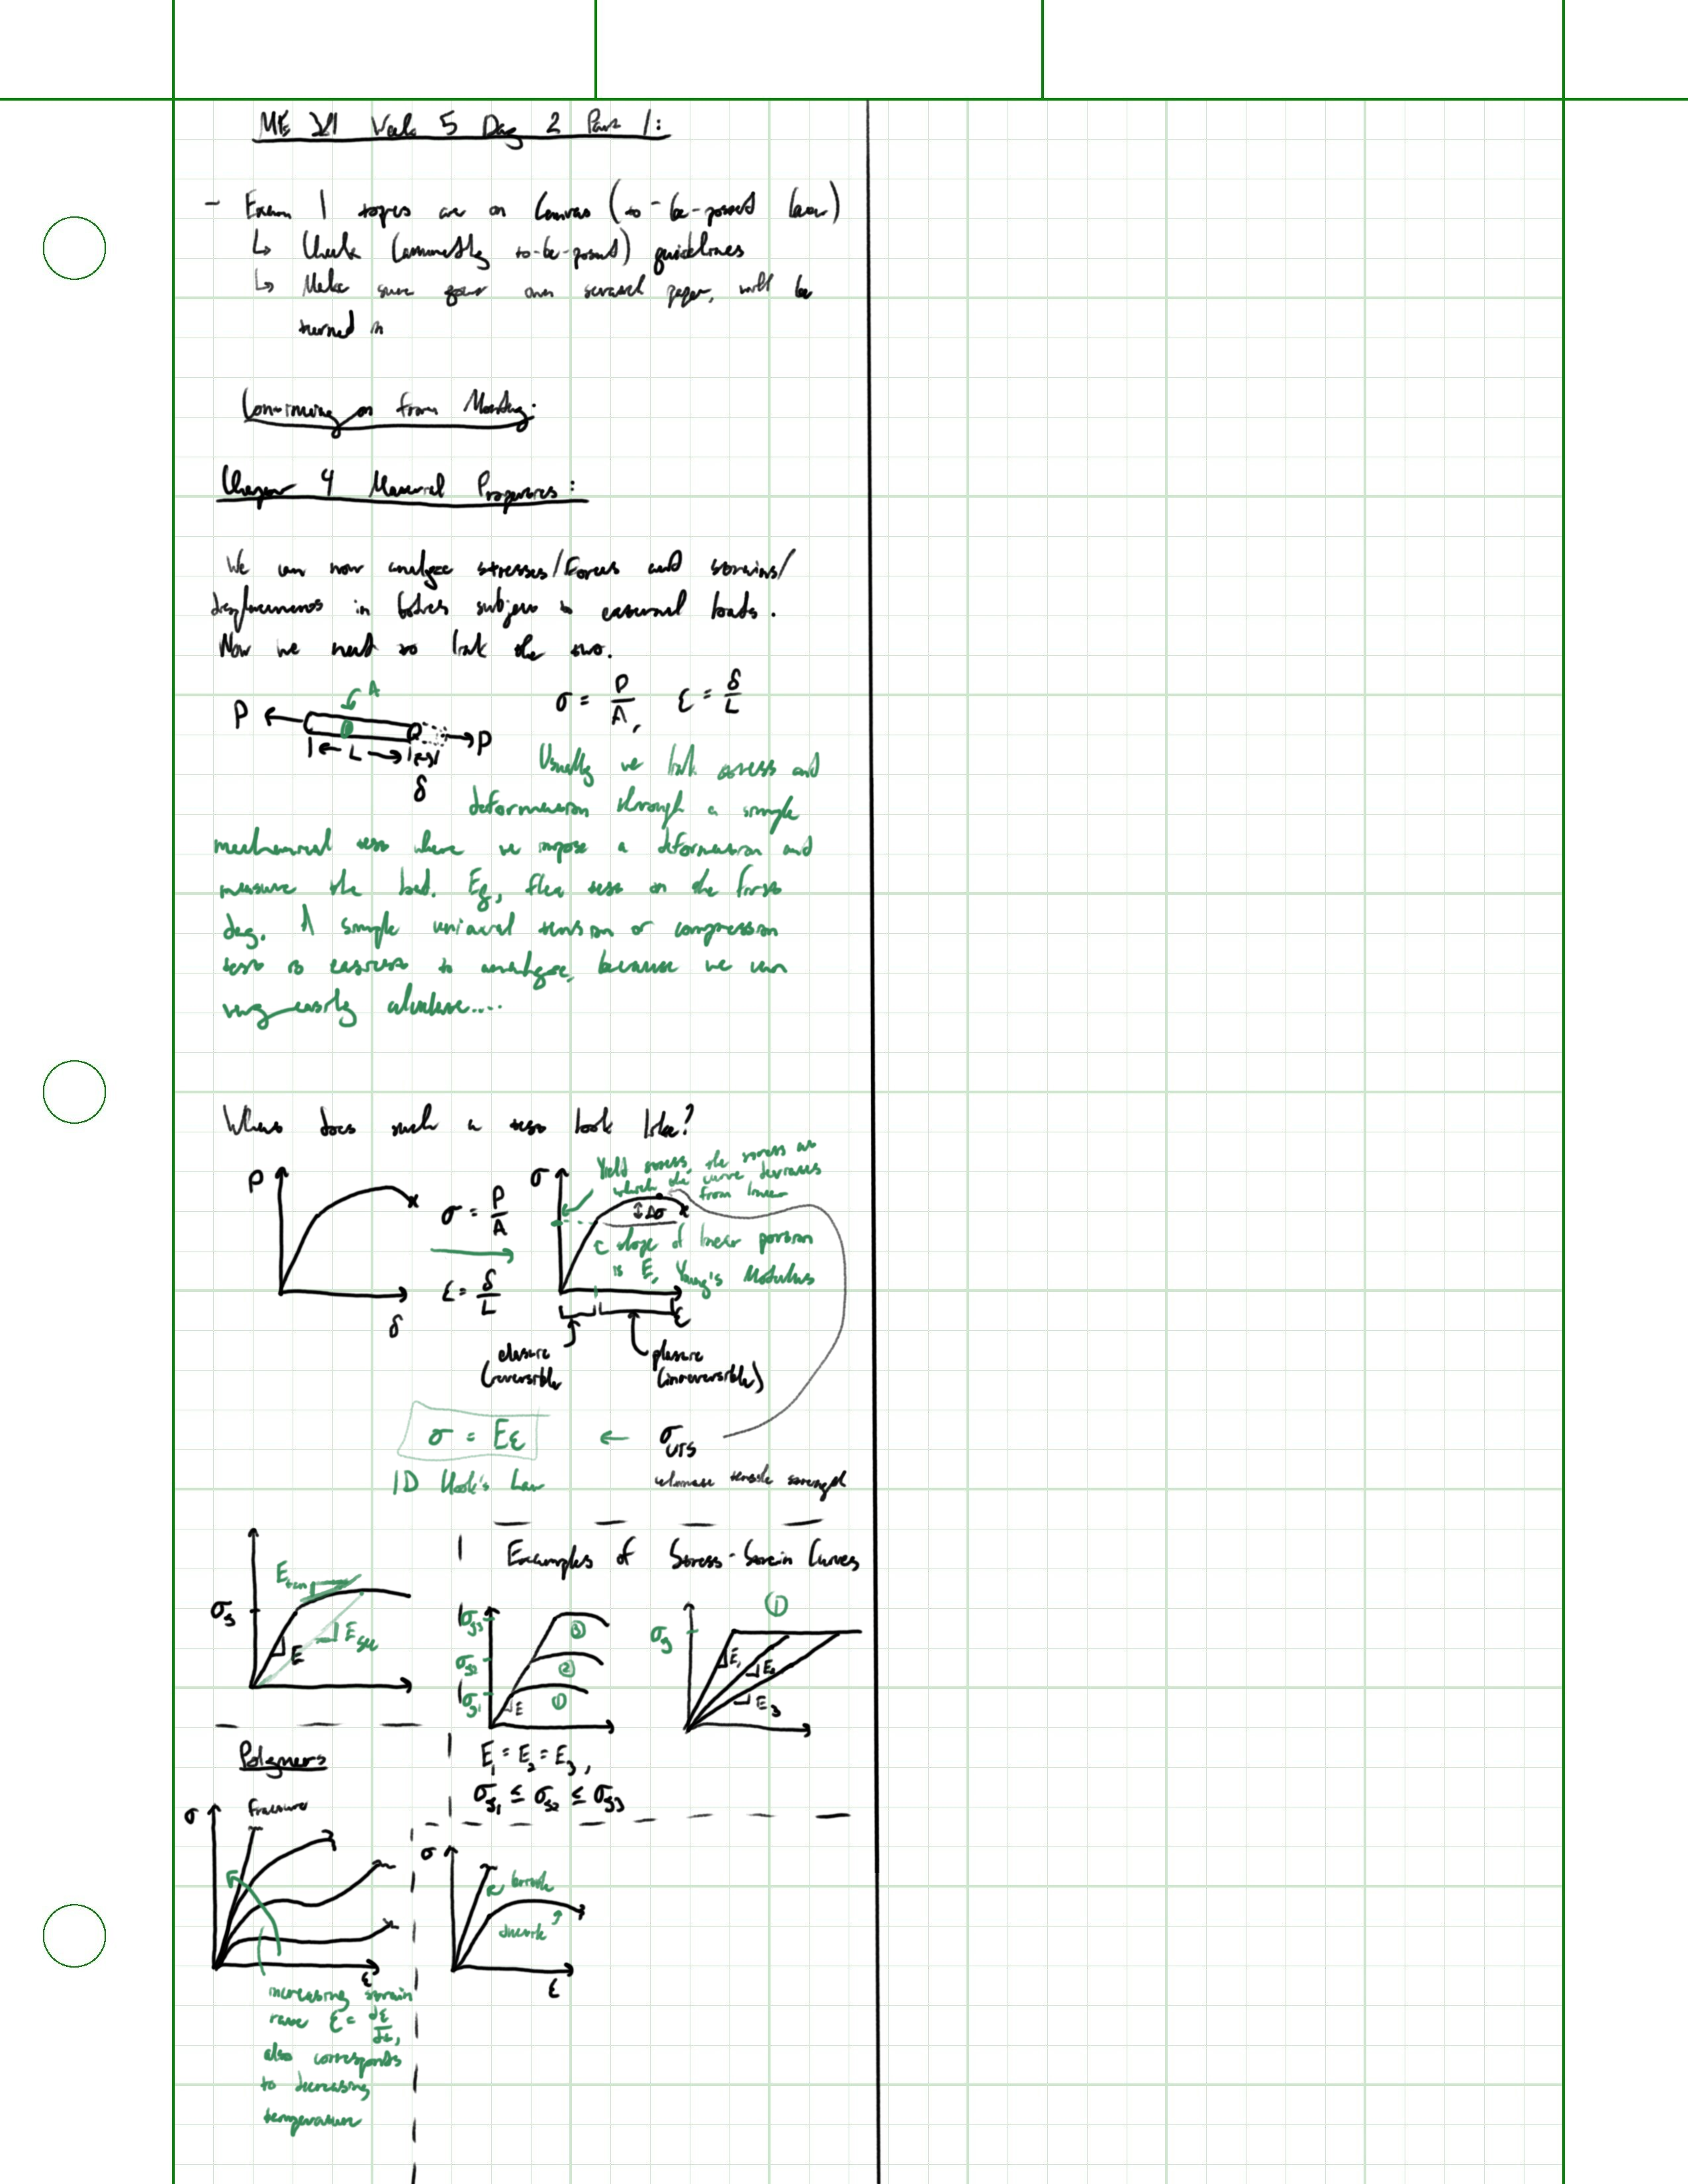 Week 5 Day 2 Part 1:
- Exam 1 topics are on Canvas (to-be-posted
↳ Check to-be-posted) guidelines
↳ Make sure your own scratch paper, will be
turned in
Continuing on from Monday:
Chapter 4 Material Properties:
We can now analyze stresses/forces and strains/
displacements in bodies subject to external loads.
Now we need to link the two.
σ = P/A, ε = δ/L
A
P P
L
δ
Usually we link stress and
deformation through a simple
mechanical test where we impose a deformation and
measure the load. Eg, flea test on the first
day. A simple uniaxial tension or compression
test is easiest to analyze, because we can
very easily calculate....
What does such a test look like?
P
δ
σ = P/A
ε = δ/L
σ
Yield stress, the stress at
which the curve deviates
from linear
Δσ
slope of linear portion
is E, Young's Modulus
ε
elastic
(reversible
plastic
(irreversible)
σ = Eε ← σUTS
1D Hook's Law
ultimate tensile strength
Etan
σy
E
Esec
Examples of Stress-Strain Curves
σy3
σy2
σy1
③
②
①
E
①
σy
E1
E2
E3
E1 = E2 = E3,
σy1 ≤ σy2 ≤ σy3
Polymers
σ
fracture
ε
increasing strain
rate ε = dε/dt,
also corresponds
to decreasing
temperature
σ
brittle
ductile
ε